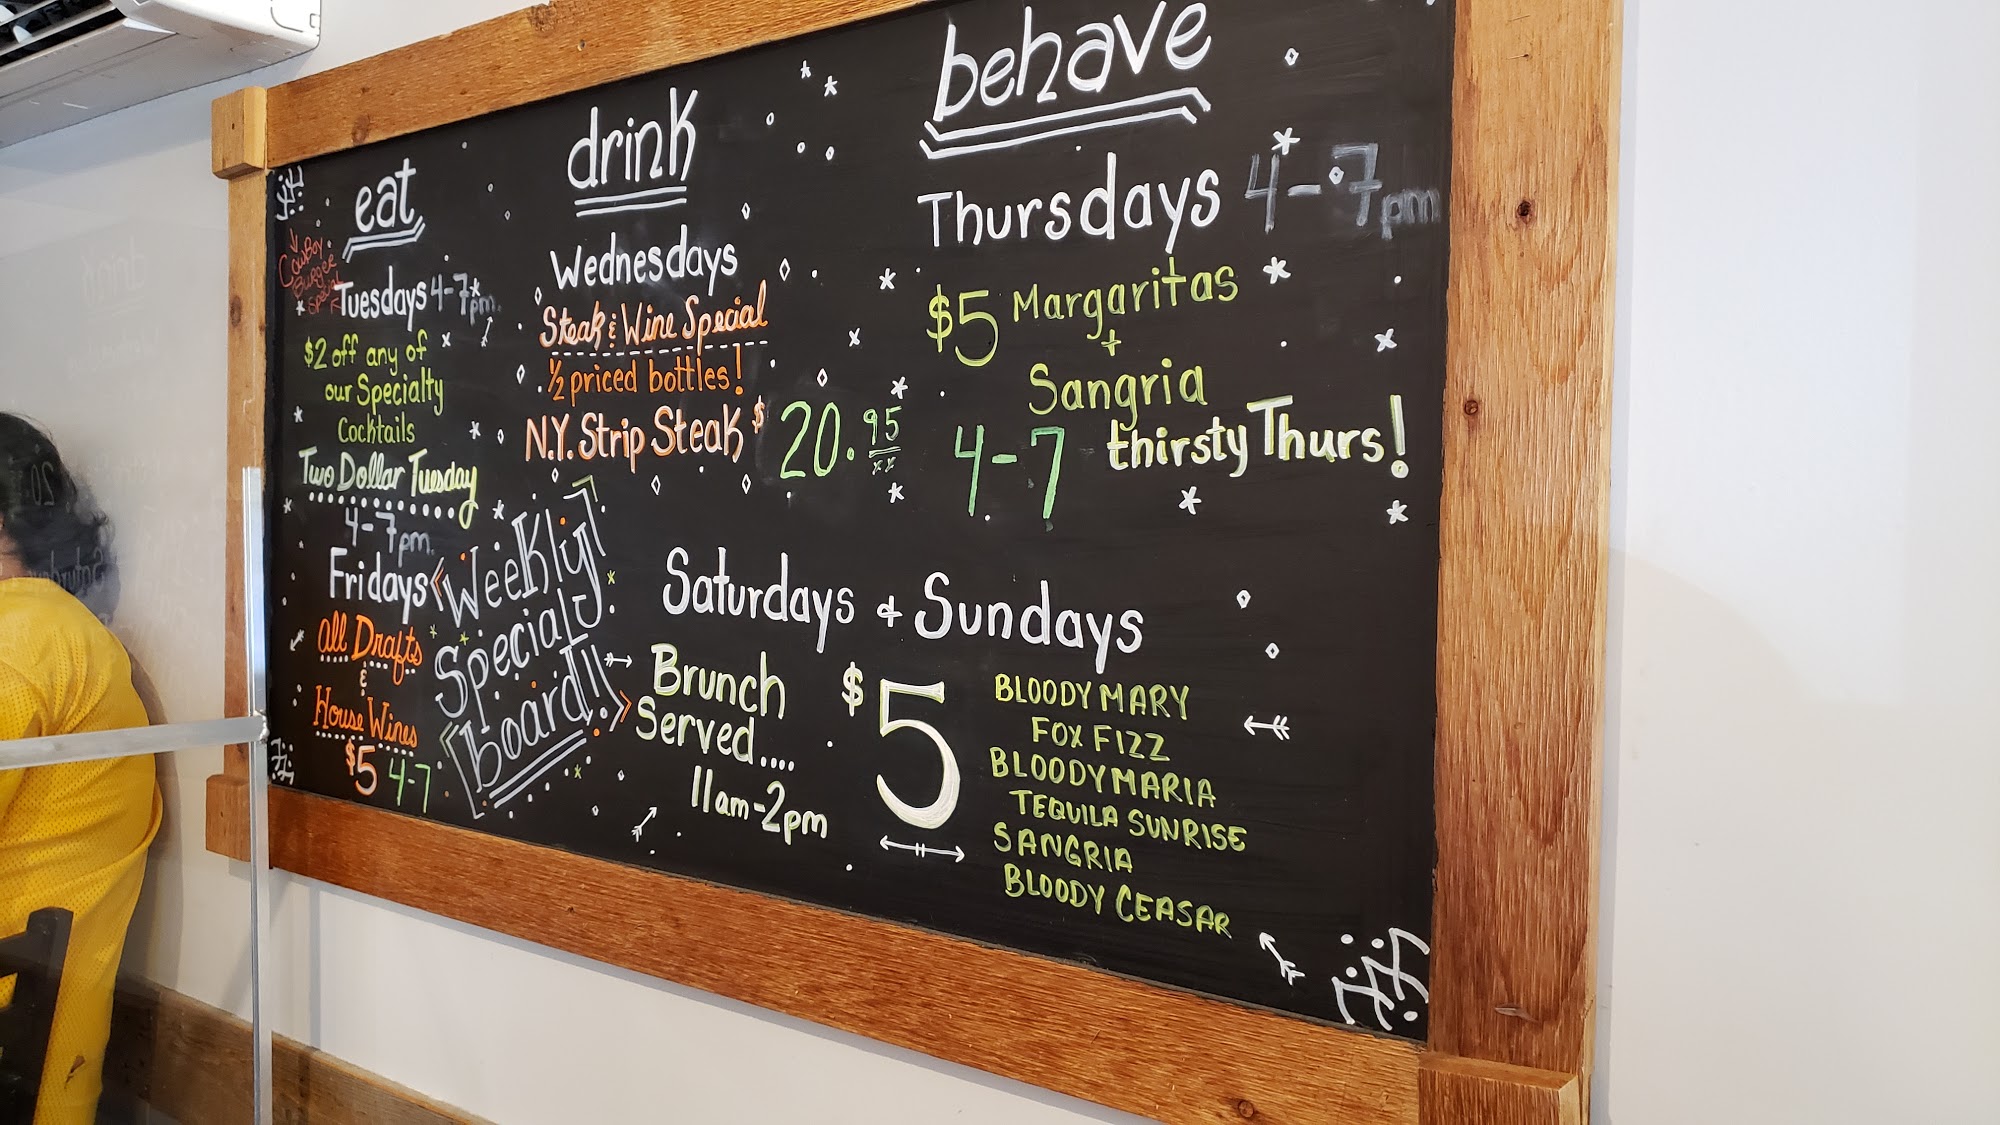 eat
drink
behave
Cowboy
Burger
Special
Tuesdays 4-7pm.
$2 off any of
our Specialty
Cocktails
Two Dollar Tuesday
Wednesdays
Steak & Wine Special
1/2 priced bottles!
N.Y. Strip Steak $20.95
Thursdays 4-7pm
$5 Margaritas
+
Sangria
4-7 thirsty Thurs!
4-7pm.
Fridays
All Drafts
&
House Wines
$5 4-7
Weekly
Specialty
board!!
Saturdays + Sundays
Brunch
Served....
11am-2pm
$5
BLOODY MARY
FOX FIZZ
BLOODY MARIA
TEQUILA SUNRISE
SANGRIA
BLOODY CEASAR